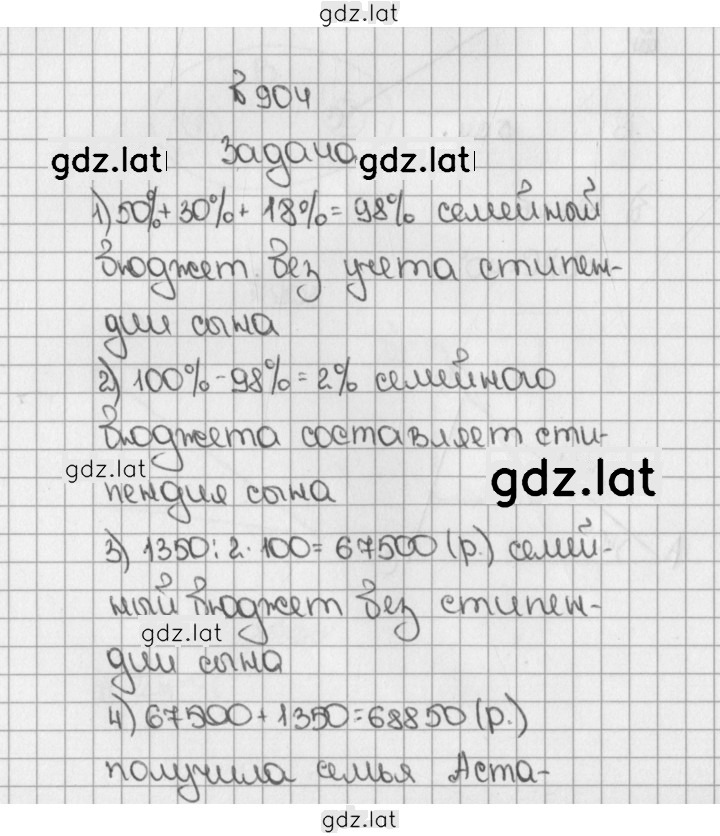 gdz.lat
в 904
gdz.lat Задача gdz.lat
1) 50% + 30% + 18% = 98% семейной
бюджет без учета стипен-
дии сына
2) 100% - 98% = 2% семейного
бюджета составляет сти-
gdz.lat
gdz.lat
пендия сына
3) 1350 : 2 · 100 = 67500 (р.) семей-
ный бюджет без стипен-
gdz.lat
дии сына
4) 67500 + 1350 = 68850 (р.)
получила семья Аста-
gdz.lat